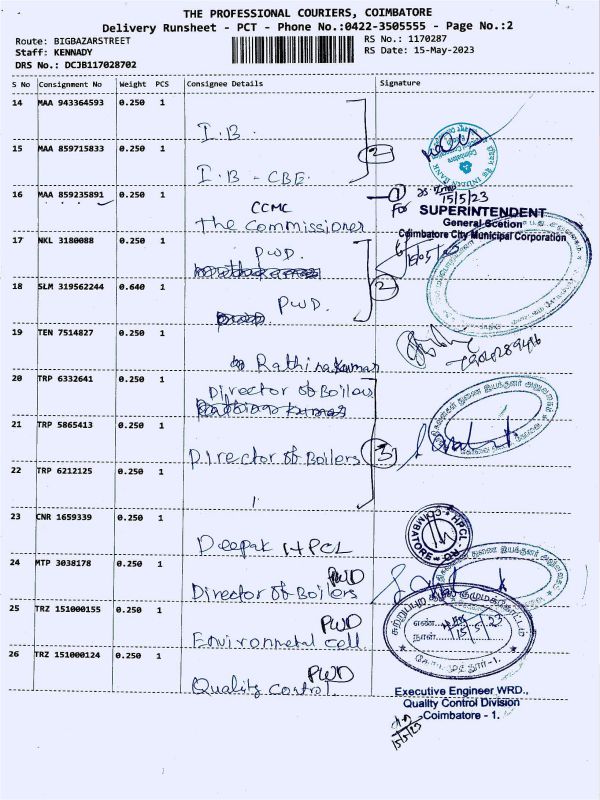 THE PROFESSIONAL COURIERS, COIMBATORE
Delivery Runsheet - PCT - Phone No.:0422-3505555 - Page No.:2
Route: BIGBAZARSTREET
Staff: KENNADY
DRS No.: DCJB117028702
RS No.: 1170287
RS Date: 15-May-2023
S No Consignment No Weight PCS Consignee Details Signature
14 MAA 943364593 0.250 1
I.B.
15 MAA 859715833 0.250 1
I.B - CBE.
2
16 MAA 859235891 0.250 1
CCMC
The Commissioner
1
15/5/23
For
SUPERINTENDENT
General Scetion
Coimbatore City Municipal Corporation
17 NKL 3180088 0.250 1
PWD.
15/05/23
18 SLM 319562244 0.640 1
PWD.
2
19 TEN 7514827 0.250 1
Rathinakumar
20 TRP 6332641 0.250 1
Director of Boilers
21 TRP 5865413 0.250 1
Director of Boilers
3
22 TRP 6212125 0.250 1
23 CNR 1659339 0.250 1
Deepak HPCL
COIMBATORE
HPCL
24 MTP 3038178 0.250 1
PWD
Director of Boilers
25 TRZ 151000155 0.250 1
PWD
Environmetal cell
எண்.
நாள்.
15/5/23
26 TRZ 151000124 0.250 1
PWD
Quality control.
Executive Engineer WRD.,
Quality Control Division
Coimbatore - 1.
15/5/23